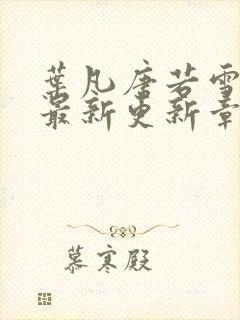 葉凡唐若雪
最新更新章
慕寒殿